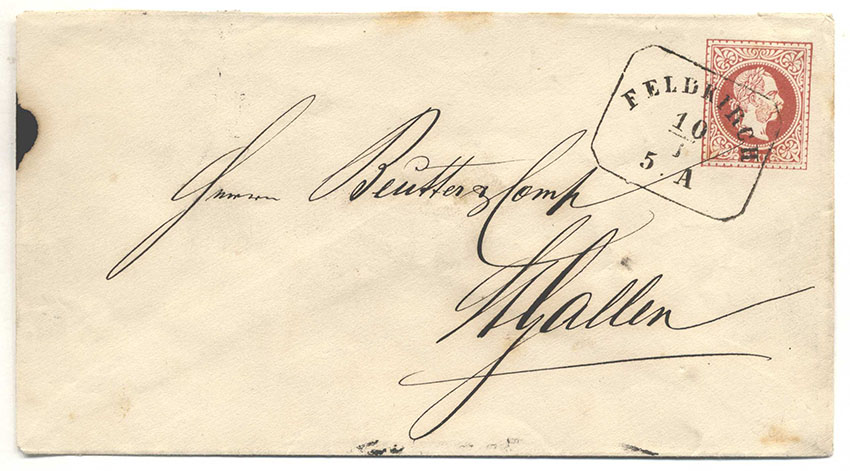 FELDKIRCH
10
5. A
Herrn Beutter & Comp
St Gallen